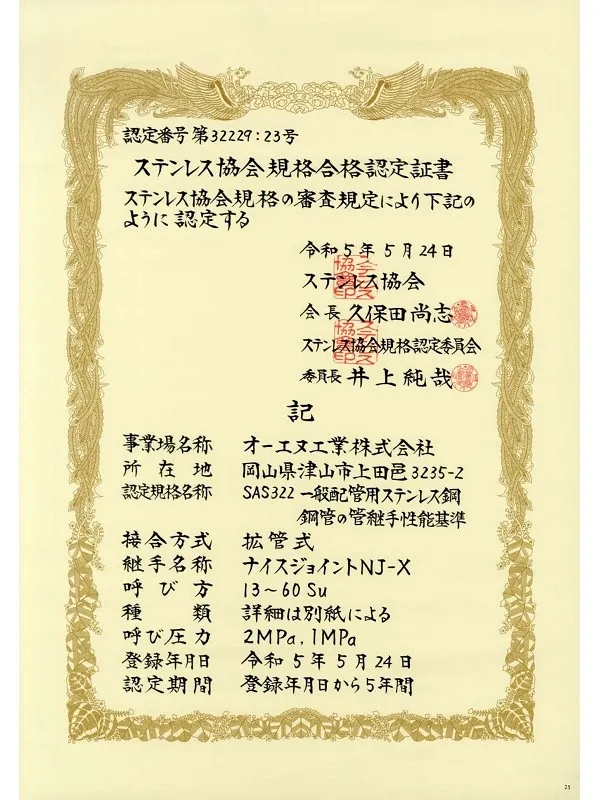 認定番号第32229:23号
ステンレス協会規格合格認定証書
ステンレス協会規格の審査規定により下記の
ように認定する
令和5年5月24日
ステンレス協会
会長 久保田尚志
ステンレス協会規格認定委員会
委員長 井上純哉
記
事業場名称 オーエヌ工業株式会社
所在地 岡山県津山市上田邑3235-2
認定規格名称 SAS322 一般配管用ステンレス鋼
鋼管の管継手性能基準
接合方式 拡管式
継手名称 ナイスジョイントNJ-X
呼び方 13~60Su
種類 詳細は別紙による
呼び圧力 2MPa, 1MPa
登録年月日 令和5年5月24日
認定期間 登録年月日から5年間
25